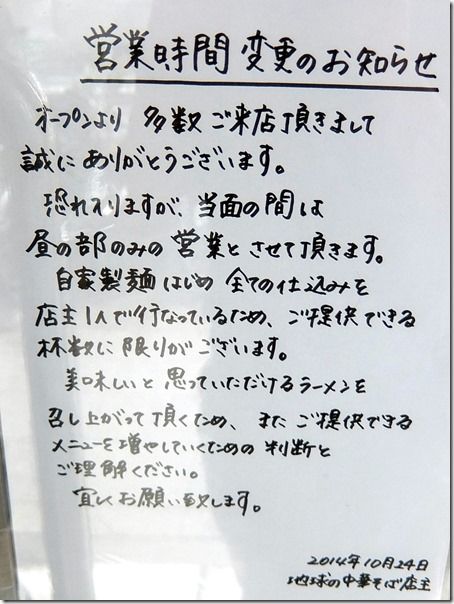 営業時間変更のお知らせ
オープンより 多数ご来店頂きまして
誠にありがとうございます。
恐れ入りますが、当面の間は
昼の部のみの営業とさせて頂きます。
自家製麺はじめ 全ての仕込みを
店主1人で行なっているため、ご提供できる
杯数に限りがございます。
美味しいと思っていただけるラーメンを
召し上がって頂くため、また ご提供できる
メニューを増やしていくための判断と
ご理解ください。
宜しくお願い致します。
2014年10月24日
地球の中華そば店主